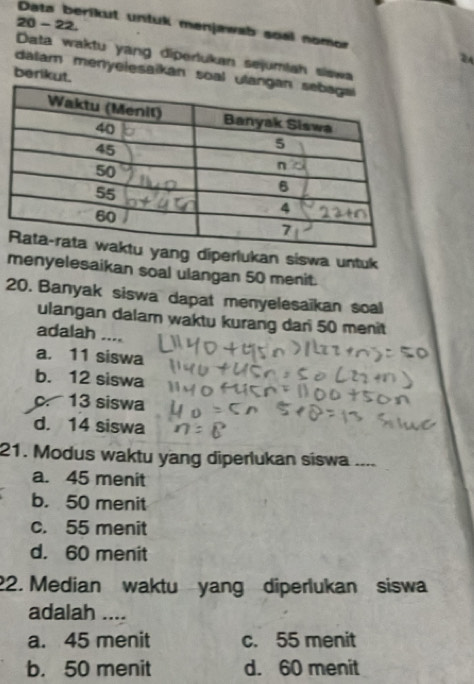 Data berikut untuk menjawab soal nomor
20 - 22.
Data waktu yang diperlukan sejumlah siswa
dalam menyelesaikan soal ulangan sebagai
berikut.
Waktu (Menit) Banyak Siswa
40 5
45 n
50 6
55 4
60 7
1140
+ 45n
22+n
Rata-rata waktu yang diperlukan siswa untuk
menyelesaikan soal ulangan 50 menit.
20. Banyak siswa dapat menyelesaikan soal
ulangan dalam waktu kurang dari 50 menit
adalah ....
a. 11 siswa
b. 12 siswa
c. 13 siswa
d. 14 siswa
(1140 + 45n)/(22+n) = 50
1140 + 45n = 50 (22+n)
1140 + 45n = 1100 + 50n
40 = 5n 5+8=13 siswa
n = 8
21. Modus waktu yang diperlukan siswa ....
a. 45 menit
b. 50 menit
c. 55 menit
d. 60 menit
22. Median waktu yang diperlukan siswa
adalah ....
a. 45 menit c. 55 menit
b. 50 menit d. 60 menit